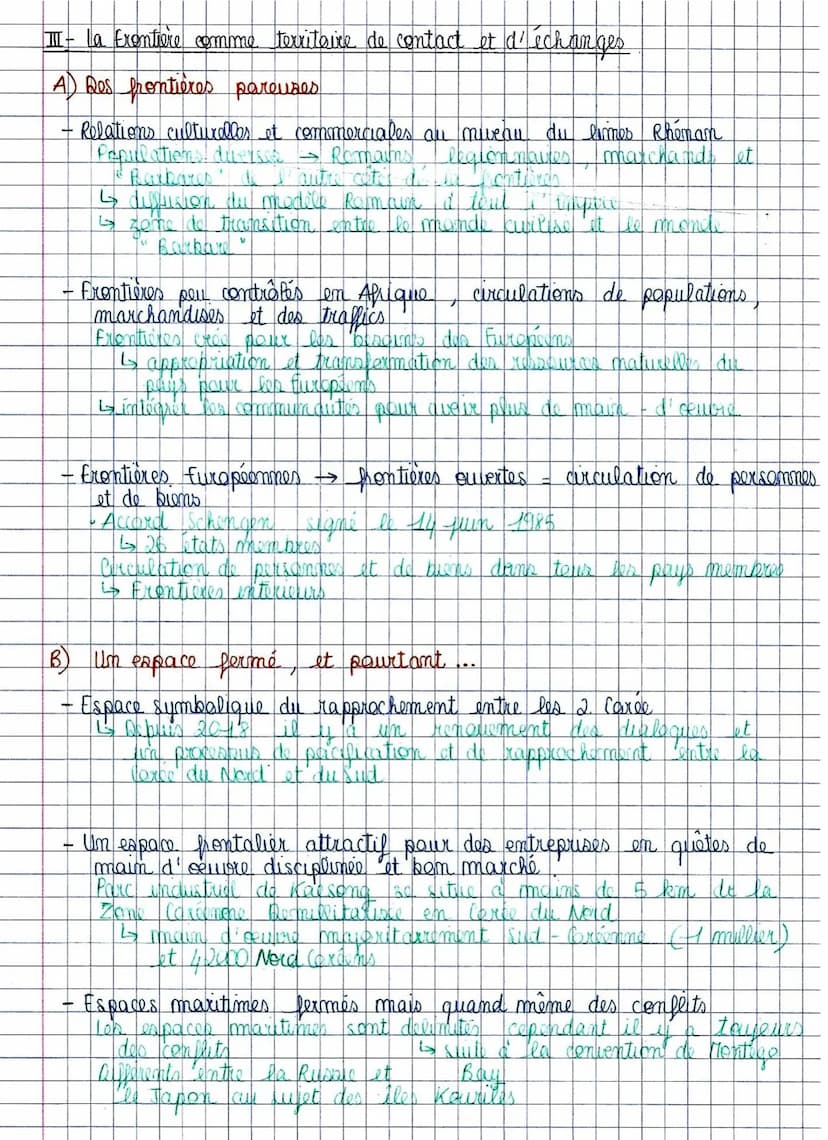 III - La frontière comme territoire de contact et d'échanges
A) Des frontières poreuses
- Relations culturelles et commerciales au niveau du limes Rhénan
Populations diverses → Romains, légionnaires, marchands et
"Barbares" de l'autre côté de la frontière
↳ diffusion du modèle Romain à tout l'empire
↳ zone de transition entre le monde civilisé et le monde
"Barbare"
- Frontières peu contrôlés en Afrique, circulations de populations,
marchandises et des traffics
Frontières créé pour les besoins des Européens
↳ appropriation et transformation des ressources naturelles du
pays pour les Européens
↳ intégrer les communautés pour avoir plus de main - d'œuvre
- Frontières Européennes → frontières ouvertes = circulation de personnes
et de biens
• Accord Schengen signé le 14 juin 1985
↳ 26 états membres
Circulation de personnes et de biens dans tous les pays membres
↳ Frontières intérieurs
B) Un espace fermé, et pourtant ...
- Espace symbolique du rapprochement entre les 2 Corée
↳ Depuis 2018 il y a un renouement des dialogues et
un processus de pacification et de rapprochement entre la
Corée du Nord et du Sud
- Un espace frontalier attractif pour des entreprises en quêtes de
main d'œuvre disciplinée et bon marché
Parc industriel de Kaesong se situe à moins de 5 km de la
Zone Coréenne Démilitarisée en Corée du Nord
↳ main d'œuvre majoritairement Sud - Coréenne (-1 millier)
et 4200 Nord Coréens
- Espaces maritimes fermés mais quand même des conflits
Les espaces maritimes sont délimités cependant il y a toujours
des conflits ↳ suite à la convention de Montego
Différents entre la Russie et Bay
le Japon au sujet des îles Kouriles